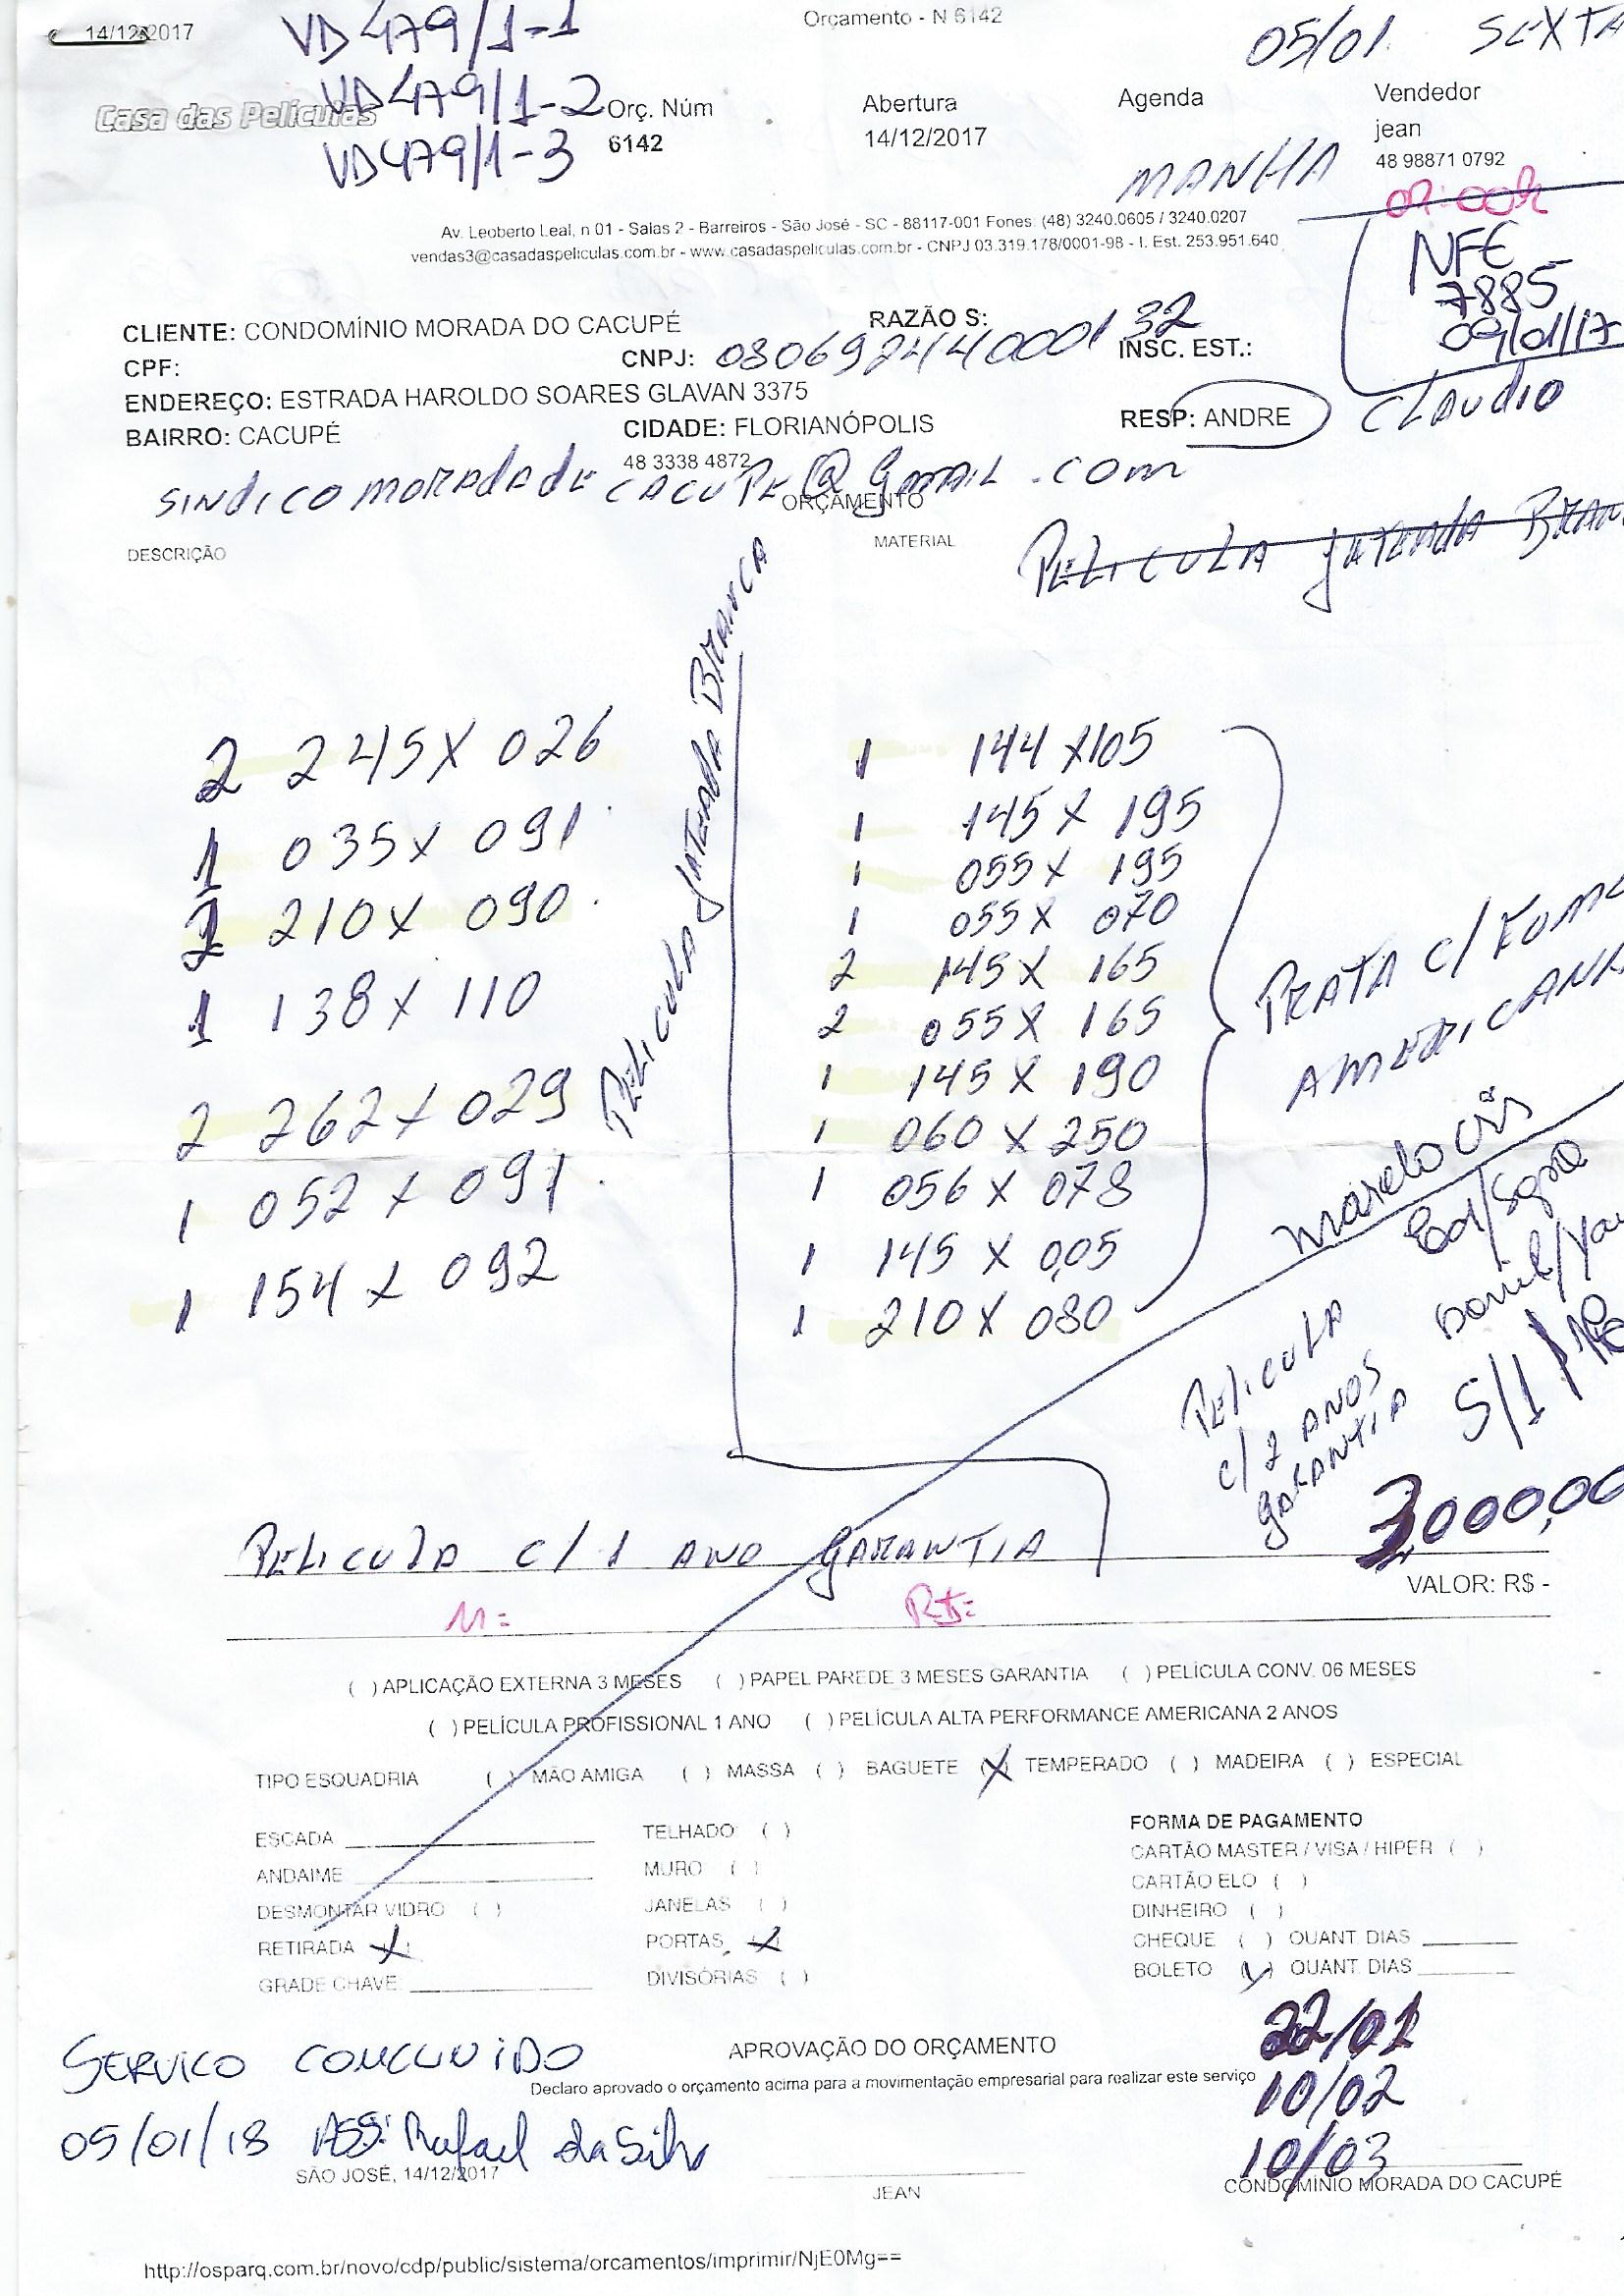 14/12/2017
Orçamento - N 6142
VD479/1-1
VD479/1-2
VD479/1-3
05/01 SEXTA
Casa das Películas
Orç. Núm
6142
Abertura
14/12/2017
Agenda
MANHA
Vendedor
jean
48 98871 0792
Av. Leoberto Leal, n 01 - Salas 2 - Barreiros - São José - SC - 88117-001 Fones: (48) 3240.0605 / 3240.0207
vendas3@casadaspeliculas.com.br - www.casadaspeliculas.com.br - CNPJ 03.319.178/0001-98 - I. Est. 253.951.640
NFE
7885
09/01/17
CLIENTE: CONDOMÍNIO MORADA DO CACUPÉ
RAZÃO S:
CPF:
CNPJ: 08069244000132
INSC. EST.:
ENDEREÇO: ESTRADA HAROLDO SOARES GLAVAN 3375
BAIRRO: CACUPÉ
CIDADE: FLORIANÓPOLIS
RESP: ANDRE
CLAUDIO
48 3338 4872
SINDICOMORADADECACUPE@GMAIL.COM
ORÇAMENTO
DESCRIÇÃO
MATERIAL
PELICULA JATEADA
PELICULA JATEADA BRANCA
2 245X026
1 035X091
2 210X090
1 138X110
2 262X029
1 052X091
1 154X092
1 144X105
1 145X195
1 055X195
1 055X070
2 145X165
2 055X165
1 145X190
1 060X250
1 056X078
1 145X0,05
1 210X080
PRATA C/
AMERICANA
PELICULA
C/2 ANOS
GARANTIA
3,000,00
PELICULA C/1 ANO GARANTIA
VALOR: R$ -
M=
R$=
( ) APLICAÇÃO EXTERNA 3 MESES ( ) PAPEL PAREDE 3 MESES GARANTIA ( ) PELÍCULA CONV. 06 MESES
( ) PELÍCULA PROFISSIONAL 1 ANO ( ) PELÍCULA ALTA PERFORMANCE AMERICANA 2 ANOS
TIPO ESQUADRIA ( ) MÃO AMIGA ( ) MASSA ( ) BAGUETE (X) TEMPERADO ( ) MADEIRA ( ) ESPECIAL
ESCADA
ANDAIME
DESMONTAR VIDRO ( )
RETIRADA (X)
GRADE CHAVE
TELHADO ( )
MURO ( )
JANELAS ( )
PORTAS (X)
DIVISÓRIAS ( )
FORMA DE PAGAMENTO
CARTÃO MASTER / VISA / HIPER ( )
CARTÃO ELO ( )
DINHEIRO ( )
CHEQUE ( ) QUANT DIAS
BOLETO (V) QUANT DIAS
22/01
10/02
10/03
SERVICO CONCLUIDO
05/01/18 ASS: Rafael da Silva
APROVAÇÃO DO ORÇAMENTO
Declaro aprovado o orçamento acima para a movimentação empresarial para realizar este serviço
SÃO JOSÉ, 14/12/2017
JEAN
CONDOMÍNIO MORADA DO CACUPÉ
http://osparq.com.br/novo/cdp/public/sistema/orcamentos/imprimir/NjE0Mg==